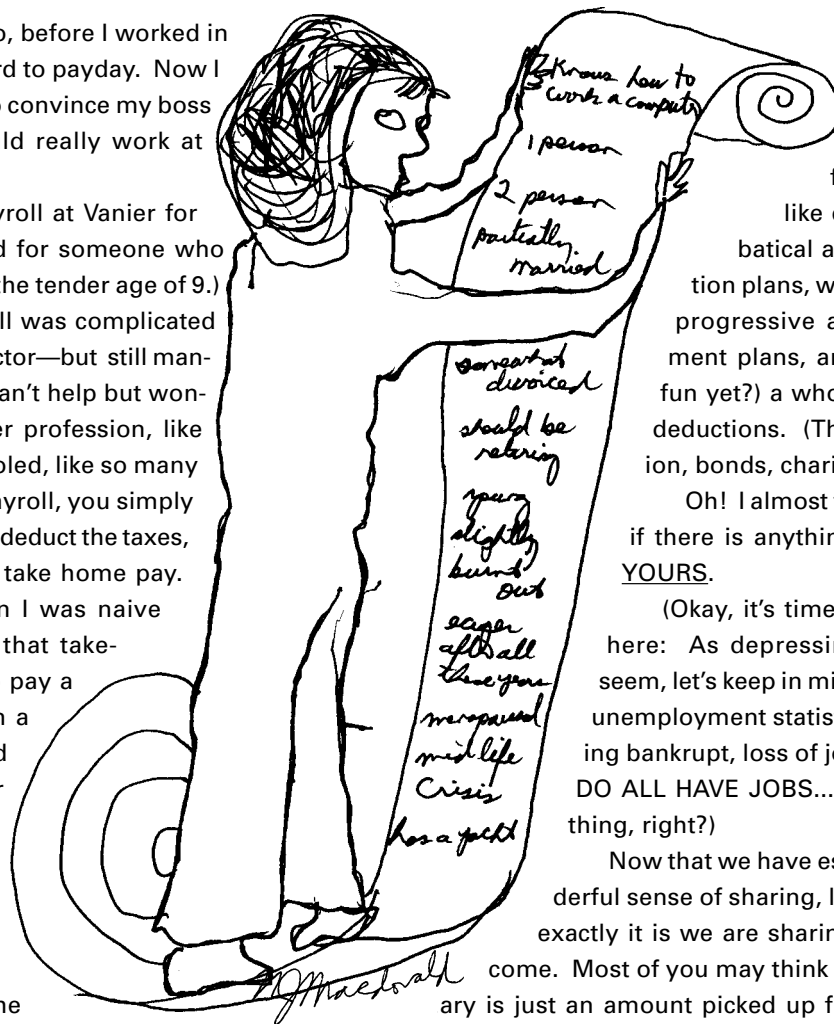 o, before I worked in
rd to payday. Now I
o convince my boss
ld really work at
yroll at Vanier for
d for someone who
the tender age of 9.)
ll was complicated
ctor—but still man-
an't help but won-
er profession, like
oled, like so many
ayroll, you simply
deduct the taxes,
take home pay.
n I was naive
that take-
pay a
n a
d
r
me
3 Knows how to
work a computer
1 person
2 person
partially
married
somewhat
divorced
should be
retiring
young
slightly
burnt
out
eager
after all
these years
menopaused
mid life
Crisis
has a yacht
MJMacdonald
f
like
batical a
tion plans, w
progressive a
ment plans, an
fun yet?) a who
deductions. (Th
ion, bonds, chari
Oh! I almost
if there is anythin
YOURS.
(Okay, it's time
here: As depressin
seem, let's keep in mi
unemployment statis
ing bankrupt, loss of j
DO ALL HAVE JOBS...
thing, right?)
Now that we have es
derful sense of sharing, l
exactly it is we are sharin
come. Most of you may think
ary is just an amount picked up f